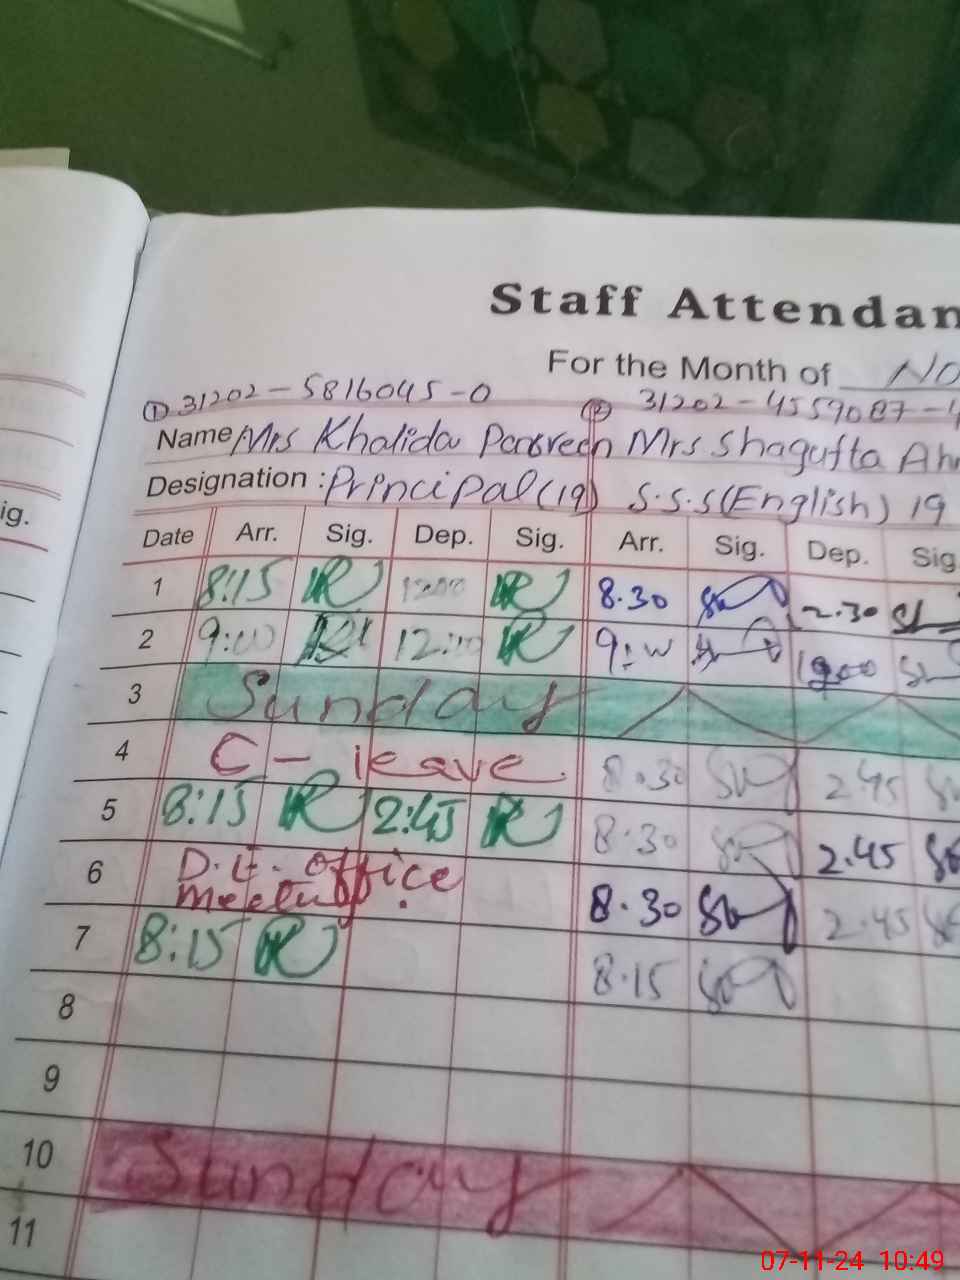 Staff Attendan
For the Month of No
① 31202-5816045-0 ② 31202-4559087-4
Name Mrs Khalida Parveen Mrs Shagufta Ah
Designation : Principal (19) S.S.S (English) 19
ig.
Date Arr. Sig. Dep. Sig. Arr. Sig. Dep. Sig
1 8:15 8.30 2.30
2 9:00 12:00
3 Sunday
4 C - leave. 8.30 2.45
5 8:15 2:45 8.30 2.45
6 office 8.30 2.45
7 8:15 8.15
8
9
10 Sunday
11
07-11-24 10:49